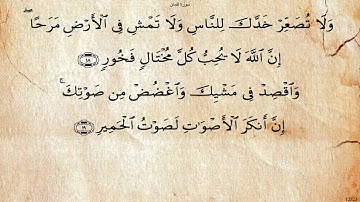 سورة لقمان
وَلَا تُصَعِّرْ خَدَّكَ لِلنَّاسِ وَلَا تَمْشِ فِى ٱلْأَرْضِ مَرَحًا ۖ
إِنَّ ٱللَّهَ لَا يُحِبُّ كُلَّ مُخْتَالٍ فَخُورٍ ١٨
وَٱقْصِدْ فِى مَشْيِكَ وَٱغْضُضْ مِن صَوْتِكَ ۚ
إِنَّ أَنكَرَ ٱلْأَصْوَٰتِ لَصَوْتُ ٱلْحَمِيرِ ١٩